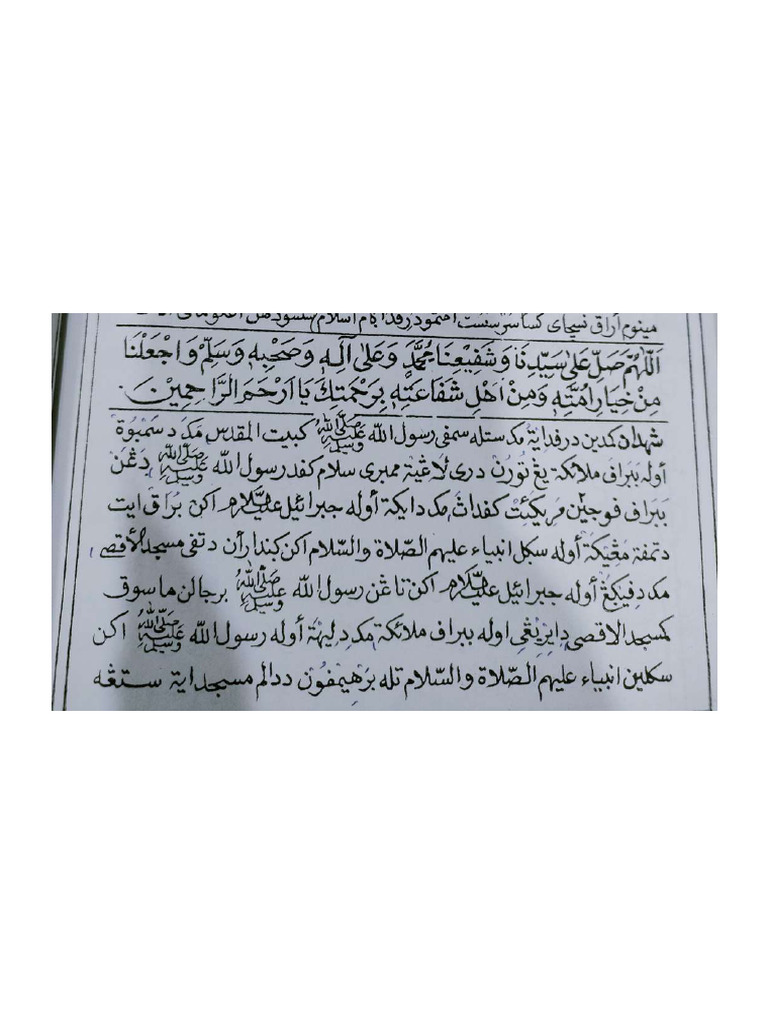 مينوم اراق نسچاى
اَللّٰهُمَّ صَلِّ عَلٰى سَيِّدِنَا وَشَفِيْعِنَا مُحَمَّدٍ وَعَلٰى اٰلِهٖ وَصَحْبِهٖ وَسَلِّمْ وَاجْعَلْنَا
مِنْ خِيَارِ اُمَّتِهٖ وَمِنْ اَهْلِ شَفَاعَتِهٖ بِرَحْمَتِكَ يَا اَرْحَمَ الرَّاحِمِيْنَ.
شهدان كمدين درفداية مكد ستله سمفى رسول الله ﷺ كبيت المقدس مكد دسمبوة
أوله ببراف ملائكة يڠ تورن درى لاڠية ممبرى سلام كفد رسول الله ﷺ دڠن
ببراف فوجين مريكئت كفداث مكد دايكة أوله جبرائيل عليه السّلام اكن براق ايت
دتمفة مڠيكة أوله سكل انبياء عليهم الصّلاة والسّلام اكن كندارأن دتفى مسجد الأقصى
مكد دفيكڠ أوله جبرائيل عليه السّلام اكن تاڠن رسول الله ﷺ برجالن ماسوق
كمسجد الاقصى دايريڠى اوله ببراف ملائكة مكد دليهة أوله رسول الله ﷺ اكن
سكلين انبياء عليهم الصّلاة والسّلام تله برهيمفون ددالم مسجد اية ستڠه